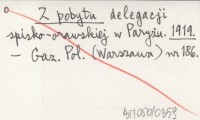 Z pobytu delegacji
spisko-orawskiej w Paryżu. 1919.
— Gaz. Pol. (Warszawa) nr 186.